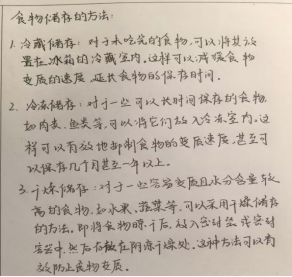 食物储存的方法:
1. 冷藏储存:对于未吃完的食物,可以将其放
置在冰箱的冷藏室内。这样可以减缓食物
变质的速度,延长食物的保存时间。
2. 冷冻储存:对于一些可以长时间保存的食物,
如肉类、鱼类等,可以将它们放入冷冻室内。这
样可以有效地抑制食物的变质速度,甚至可
以保存几个月甚至一年以上。
3. 干燥储存:对于一些容易变质且水分含量较
高的食物,如水果、蔬菜等,可以采用干燥储存
的方法。即将食物晒干后,放入密封袋或密封
容器中,然后存放在阴凉干燥处。这种方法可以有
效防止食物变质。